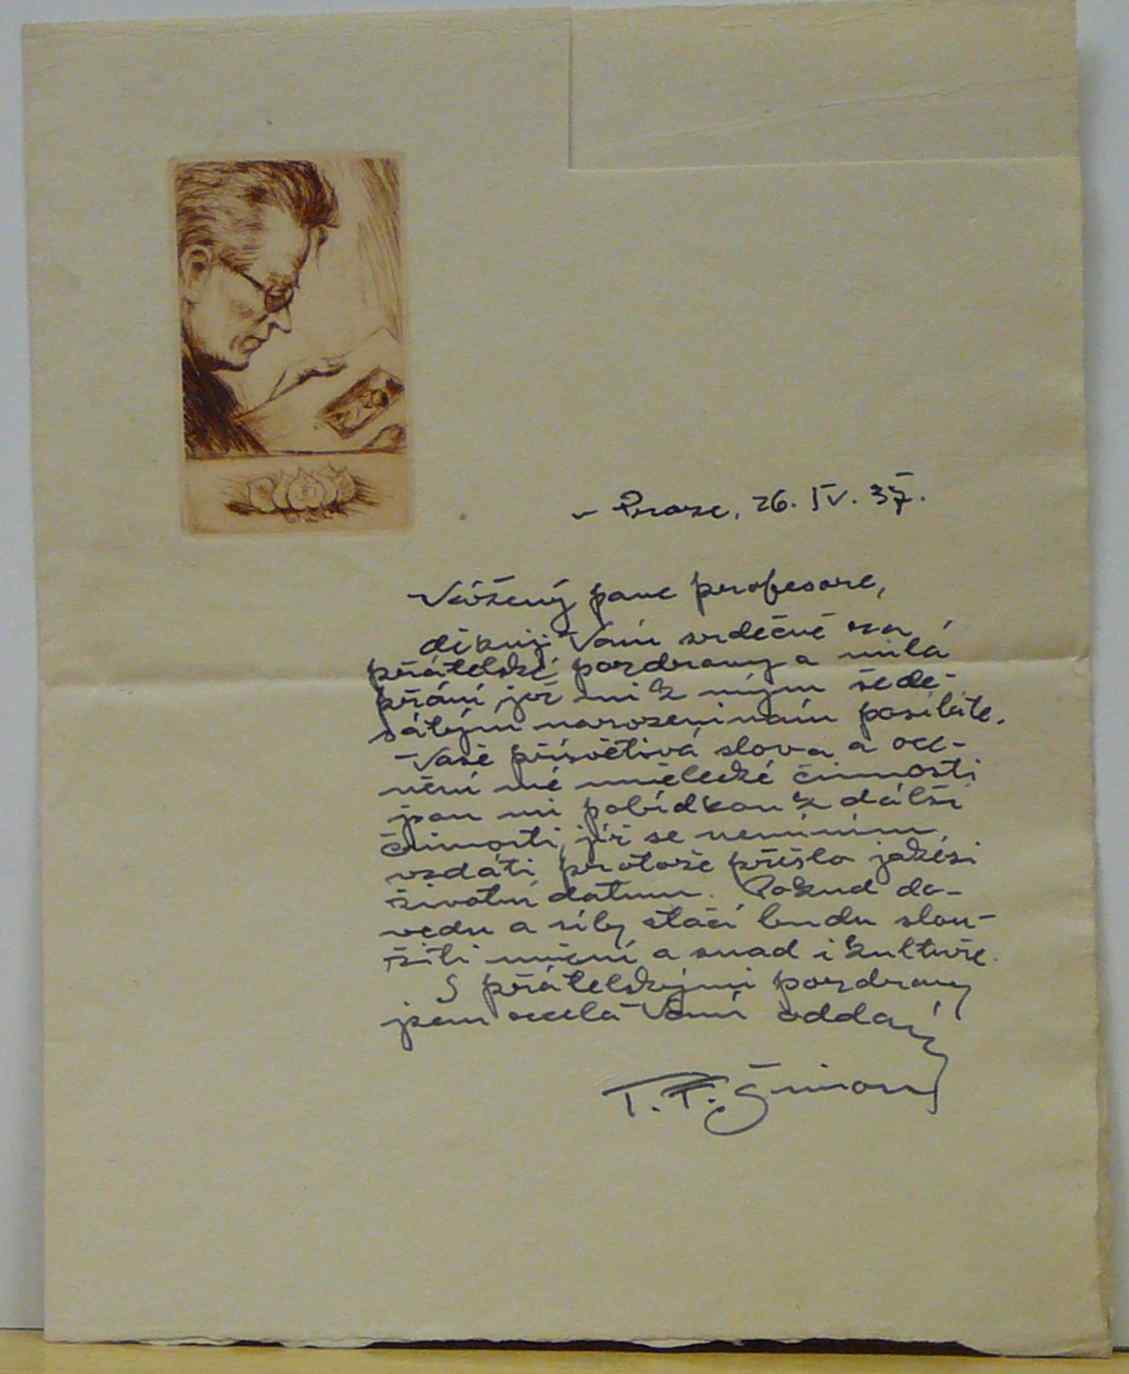 v Praze, 26. IV. 37.
Vážený pane profesore,
děkuji Vám srdečně za
přátelské pozdravy a milá
přání, jež mi k mým šede-
sátým narozeninám posíláte.
Vaše přísvětivá slova a oce-
nění mé umělecké činnosti
jsou mi pobídkou k další
činnosti, jíž se nemíním
vzdáti protože přišlo jakési
životní datum. Pokud do-
vedu a síly stačí budu slou-
žiti umění a snad i kultuře.
S přátelskými pozdravy
jsem zcela Vámi oddaný
T. F. Šimon